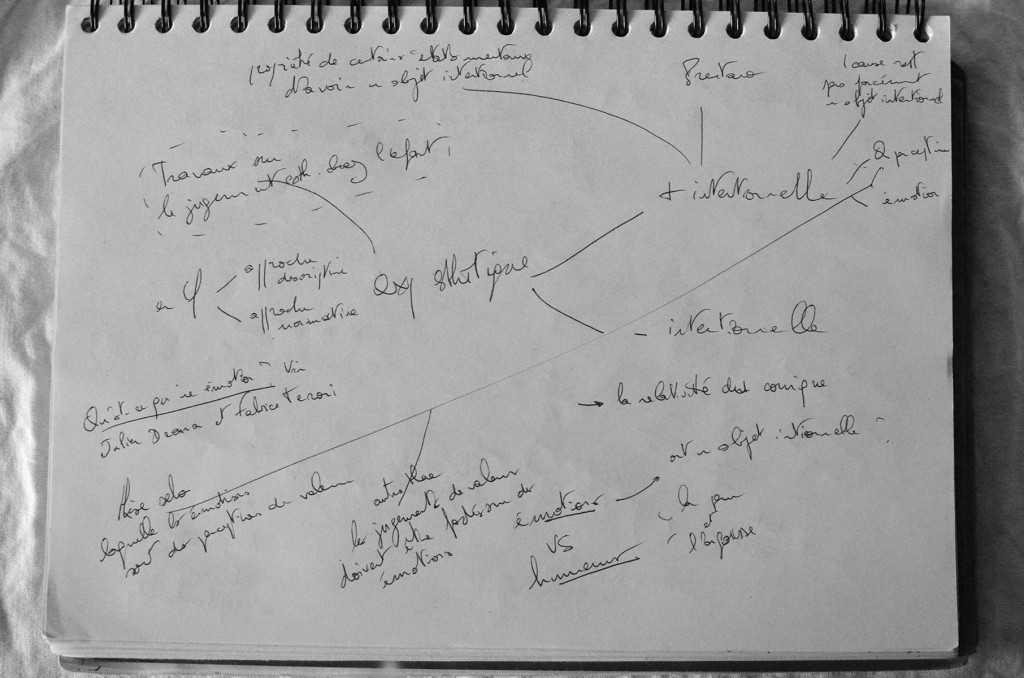 propriété de certains états mentaux
d'avoir un objet intentionnel
Brentano
pas forcément
un objet intentionnel
Travaux sur
le jugement esth. chez l'enfant
+ intentionnelle
perception
émotion
en φ
approche
descriptive
approche
normative
exp esthétique
- intentionnelle
Qu'est-ce qu'une émotion ? Vrin
Julien Deonna et Fabrice Teroni
→ la relativité du comique
ont un objet intentionnelle
thèse selon
laquelle les émotions
sont des perceptions de valeurs
autre thèse
les jugements de valeurs
doivent être fondés sur des
émotions
émotions
vs
humeurs
la peur
et
l'angoisse